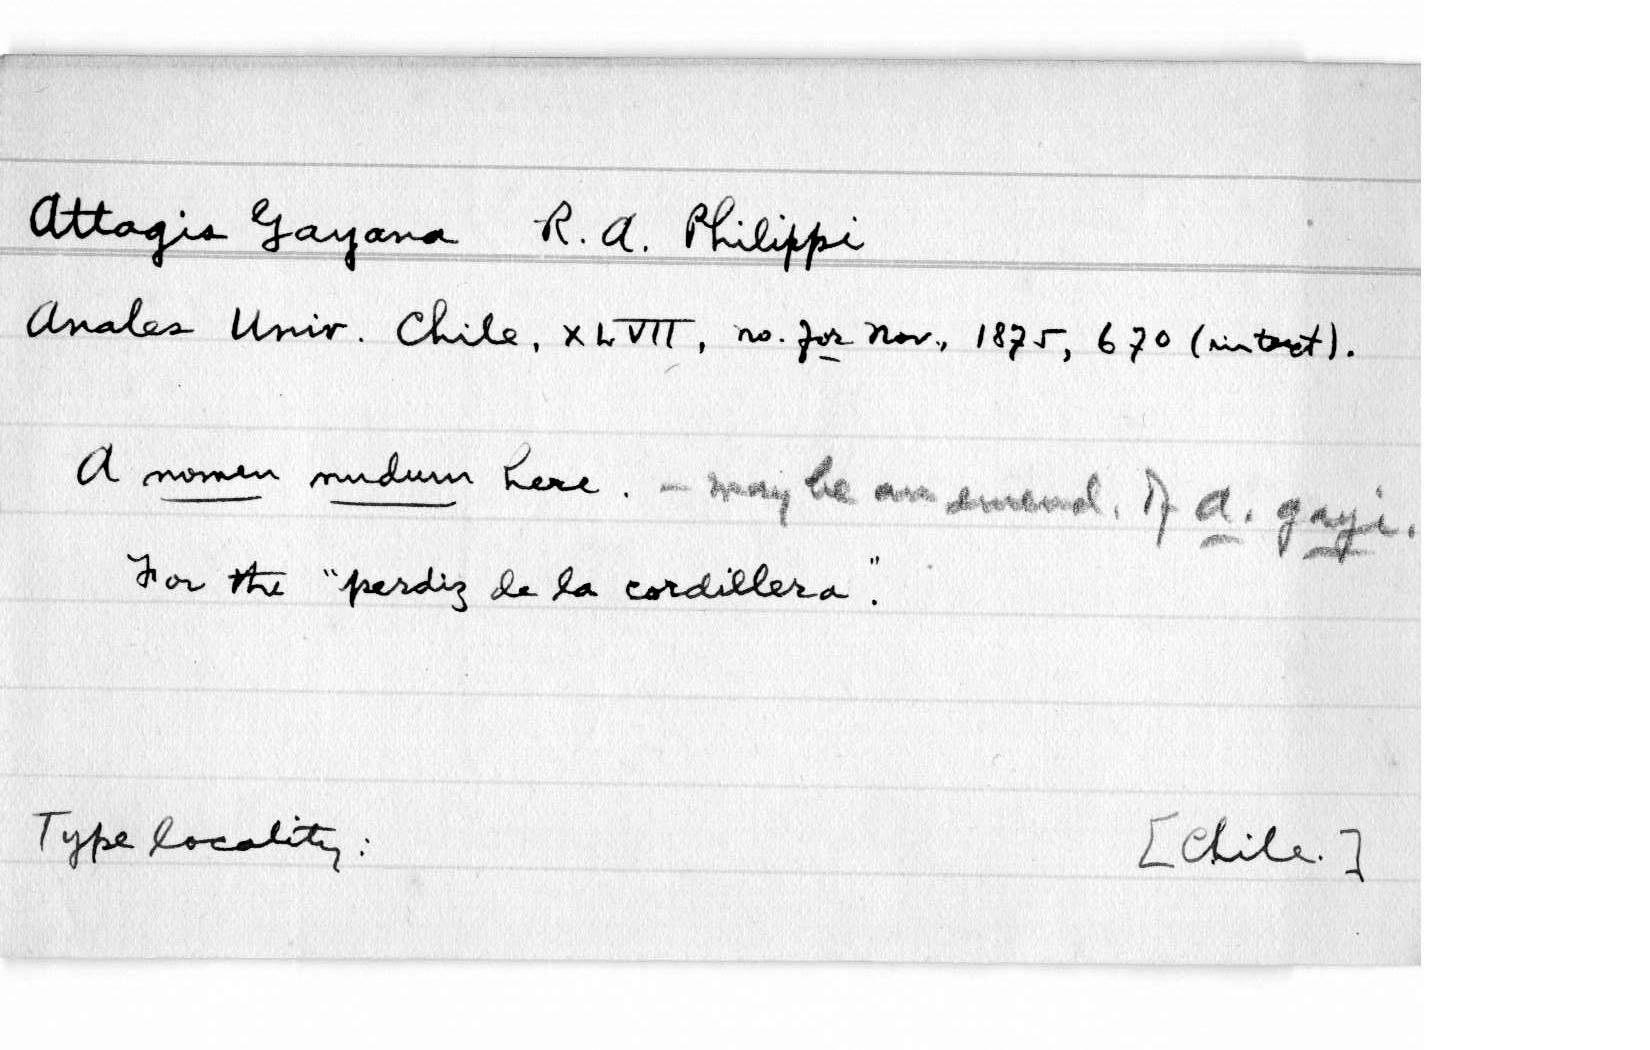 Attagis Gayana R. A. Philippi
Anales Univ. Chile, XLVII, no. for Nov., 1875, 670 (in text).
A nomen nudum here. – may be an emend. of A. gayi.
For the "perdiz de la cordillera".
Type locality: [Chile.]